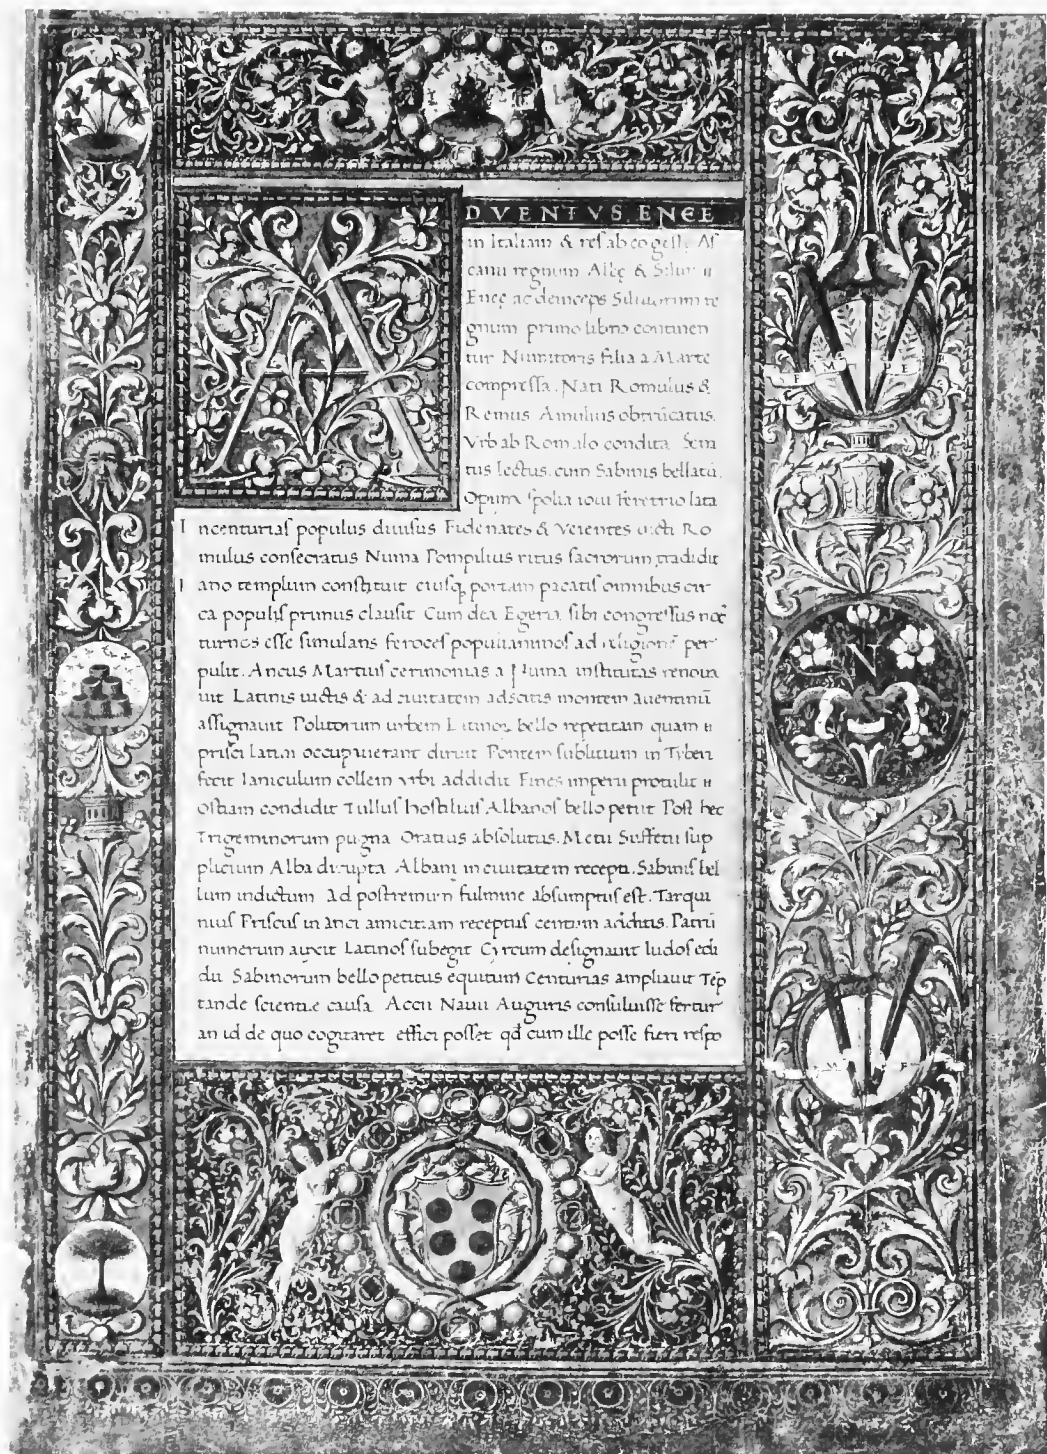 DVENTVS. ENEE
in Italiam & res ab eo gestę As
canii regnum Albę & Siluii
Enęę ac deinceps Siluiorum re
gnum primo libro continen
tur Numitoris filia a Marte
compressa. Nati Romulus &
Remus Amulius obtrūcatus.
Vrb ab Romulo condita Sena
tus lectus. cum Sabinis bellatū.
Opima spolia ioui feretrio lata
Incenturias populus diuisus Fidenates & Veientes uicti Ro
mulus consecratus Numa Pompilius ritus sacrorum tradidit
Iano templum constituit eiusq portam pacatis omnibus cir
ca populis primus clausit Cum dea Egeria sibi congressus noc
turnos esse simulans feroces populi animos ad religionē per
pulit. Ancus Martius cerimonias a Numa institutas renoua
uit Latinis uictis & ad ciuitatem adscitis montem auentinū
assignauit Politorum urbem Latinoꝝ bello repetitam quam
prisci latini occupauerant diruit Pontem sublitium in Tyberi
fecit Ianiculum collem vrbi addidit Fines imperii protulit
Ostiam condidit Tullus hostilius Albanos bello petiit Post hec
Trigeminorum pugna Oratius absolutus. Metii Suffetii sup
plicium Alba dirupta Albani in ciuitatem recepti. Sabinis bel
lum indictum Ad postremum fulmine absumptus est. Tarqui
nius Priscus in anci amicitiam receptus centum additis. Patrū
numerum auxit Latinos subegit Cyrcum designauit ludos edi
dit Sabinorum bello petitus equitum Centurias ampliauit Tēp
tande scientie causa Accii Nauii Auguris consuluisse fertur
an id de quo cogitaret effici posset qd cum ille posse fieri respo
N